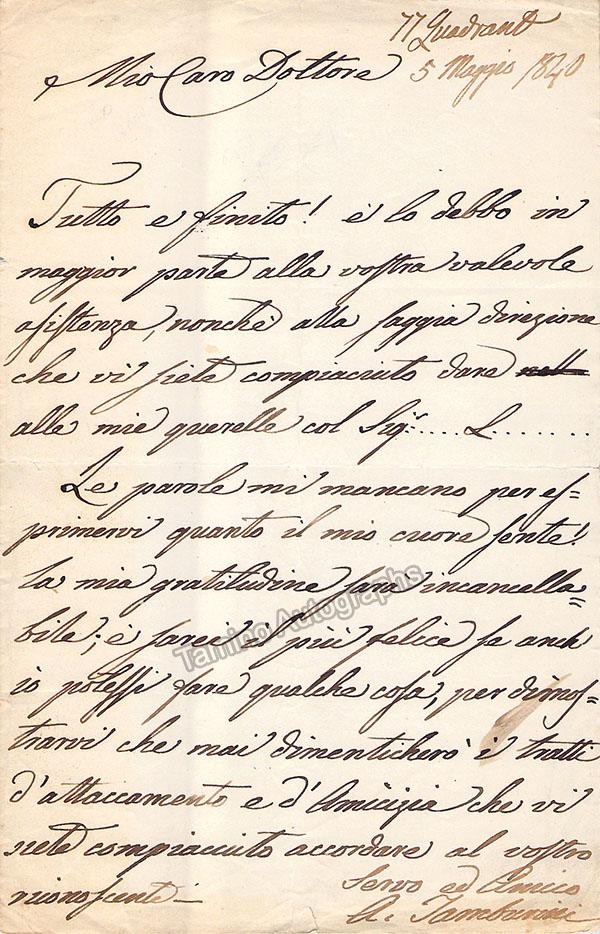 77 Quadrant
Mio Caro Dottore 5 Maggio 1840
Tutto e finito! è lo debbo in
maggior parte alla vostra valevole
asistenza, nonchè alla saggia direzione
che vi siete compiaciuto dare
alle mie querelle col Sigr.... L.......
Le parole mi mancano per es=
primervi quanto il mio cuore sente!
la mia gratitudine sarà incancella=
bile; è sarei il più felice se anch
io potessi fare qualche cosa, per dimos=
trarvi che mai dimenticherò i tratti
d'attaccamento e d'Amicizia che vi
siete compiaciuto accordare al vostro
riconoscente —
Servo ed Amico
A. Tamburini
Tamino Autographs